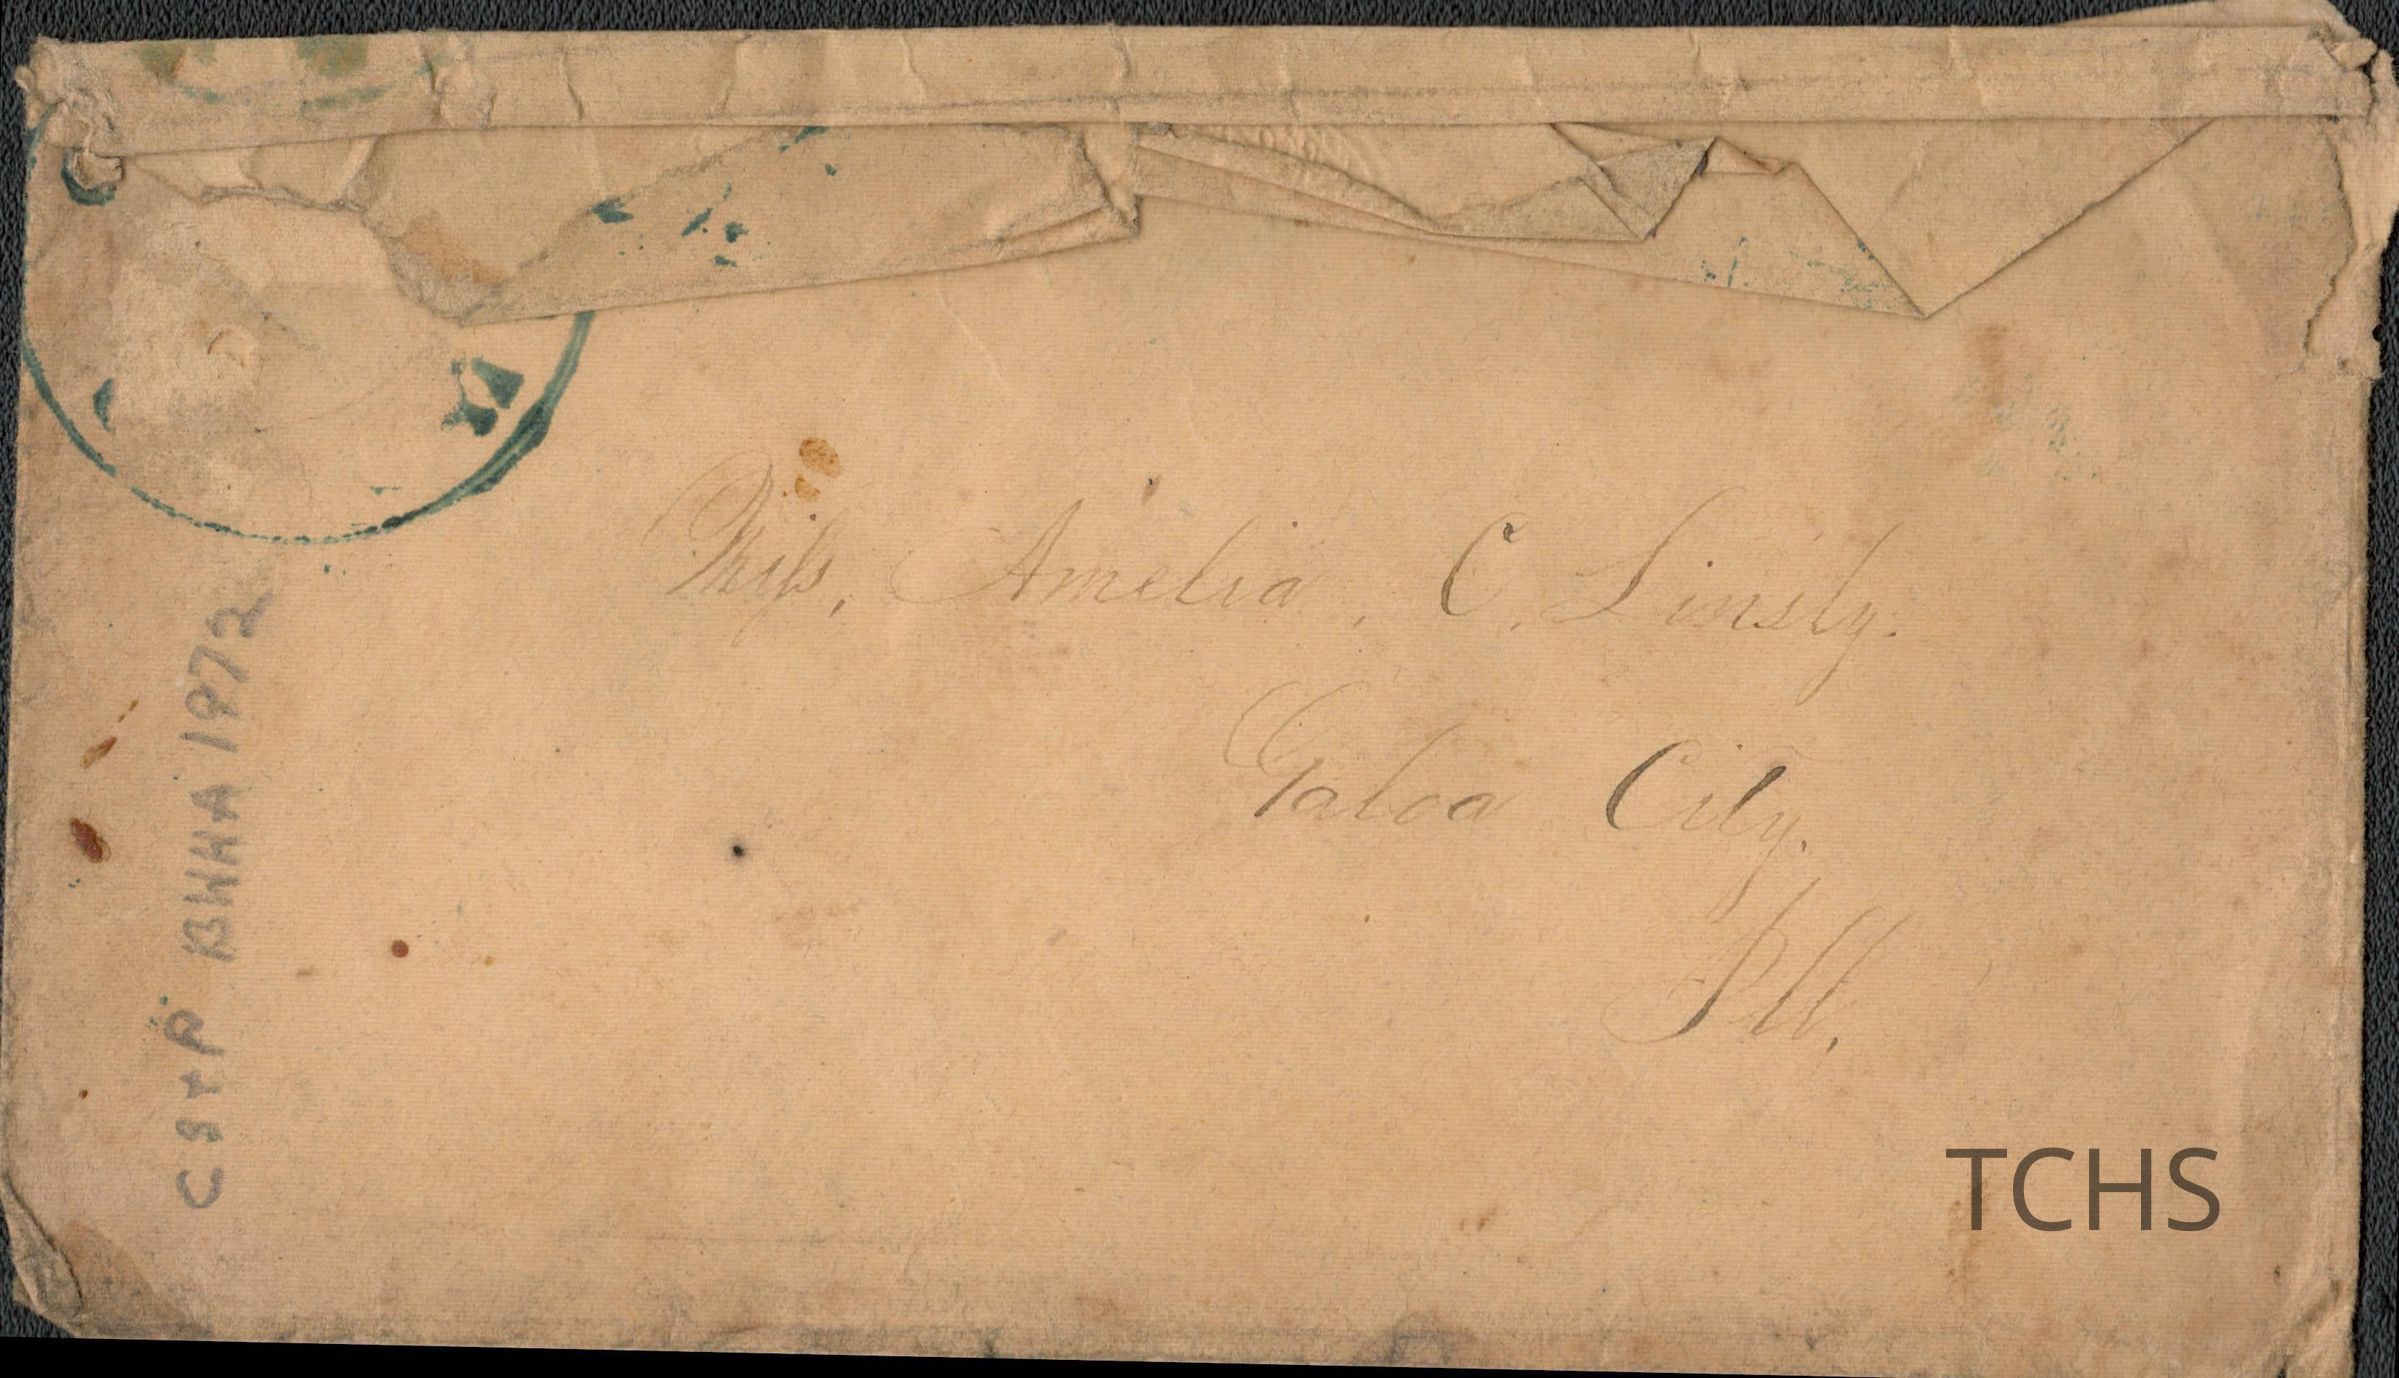 Miss, Amelia, C, Linsly.
Galva City.
Ill,
CS+P BWHA 1972
TCHS